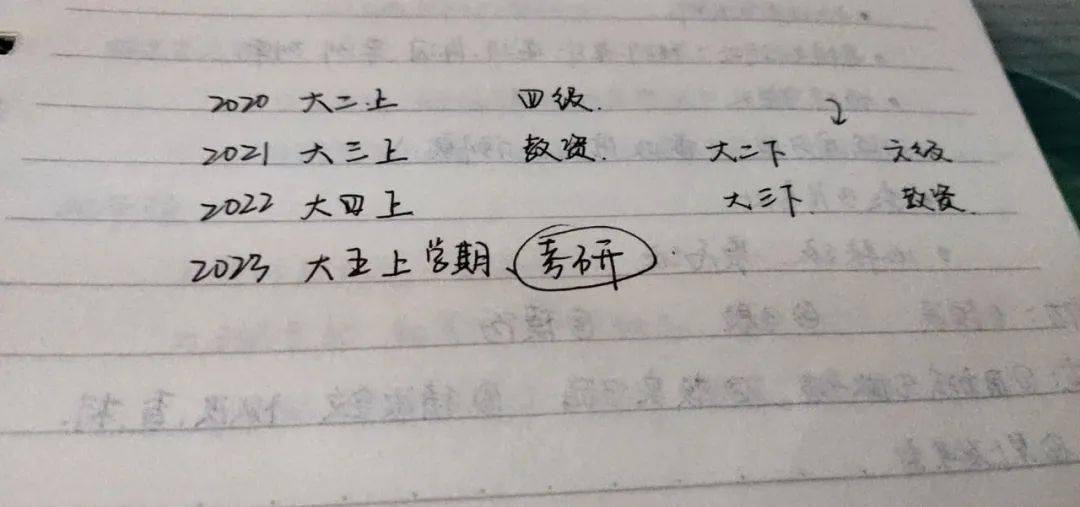 2020 大二上 四级.
2021 大三上 教资. 大二下 六级
2022 大四上 大三下. 教资.
2023 大五上学期、考研.